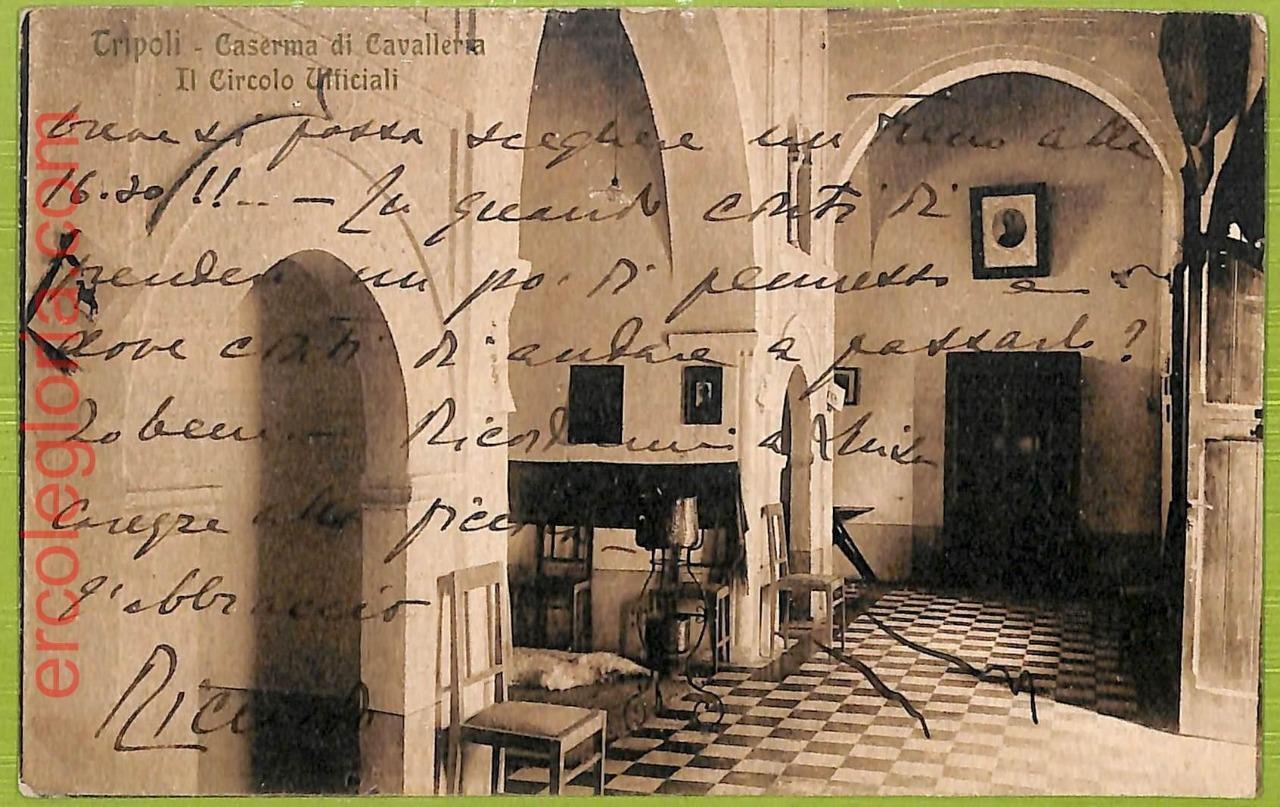 Tripoli - Caserma di Cavalleria
Il Circolo Ufficiali
si possa scegliere un treno alle
16.30!!.. — In quando conti di
prendere un po' di permesso e
dove conti di andare a passarlo?
Ricordami a
alla
L'abbraccio
ercolegloria.com